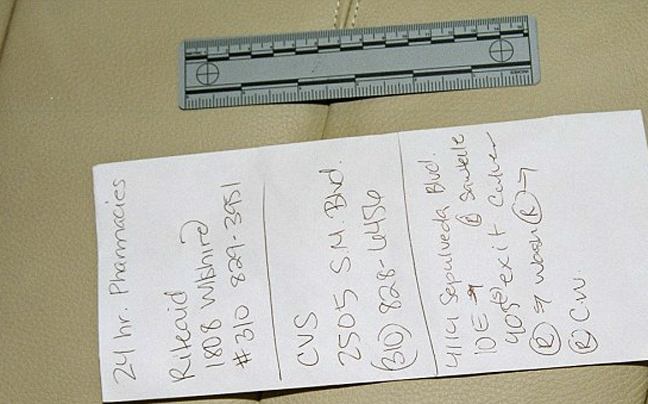 24 hr. Pharmacies
Riteaid
1808 Wilshire
#310 829-3951
CVS
2505 S.M. Blvd.
(310) 828-6456
4114 Sepulveda Blvd.
10E → Ⓡ Sawtelle
405 Ⓢ exit Culver
Ⓡ → Wash Ⓡ →
Ⓡ C.W.